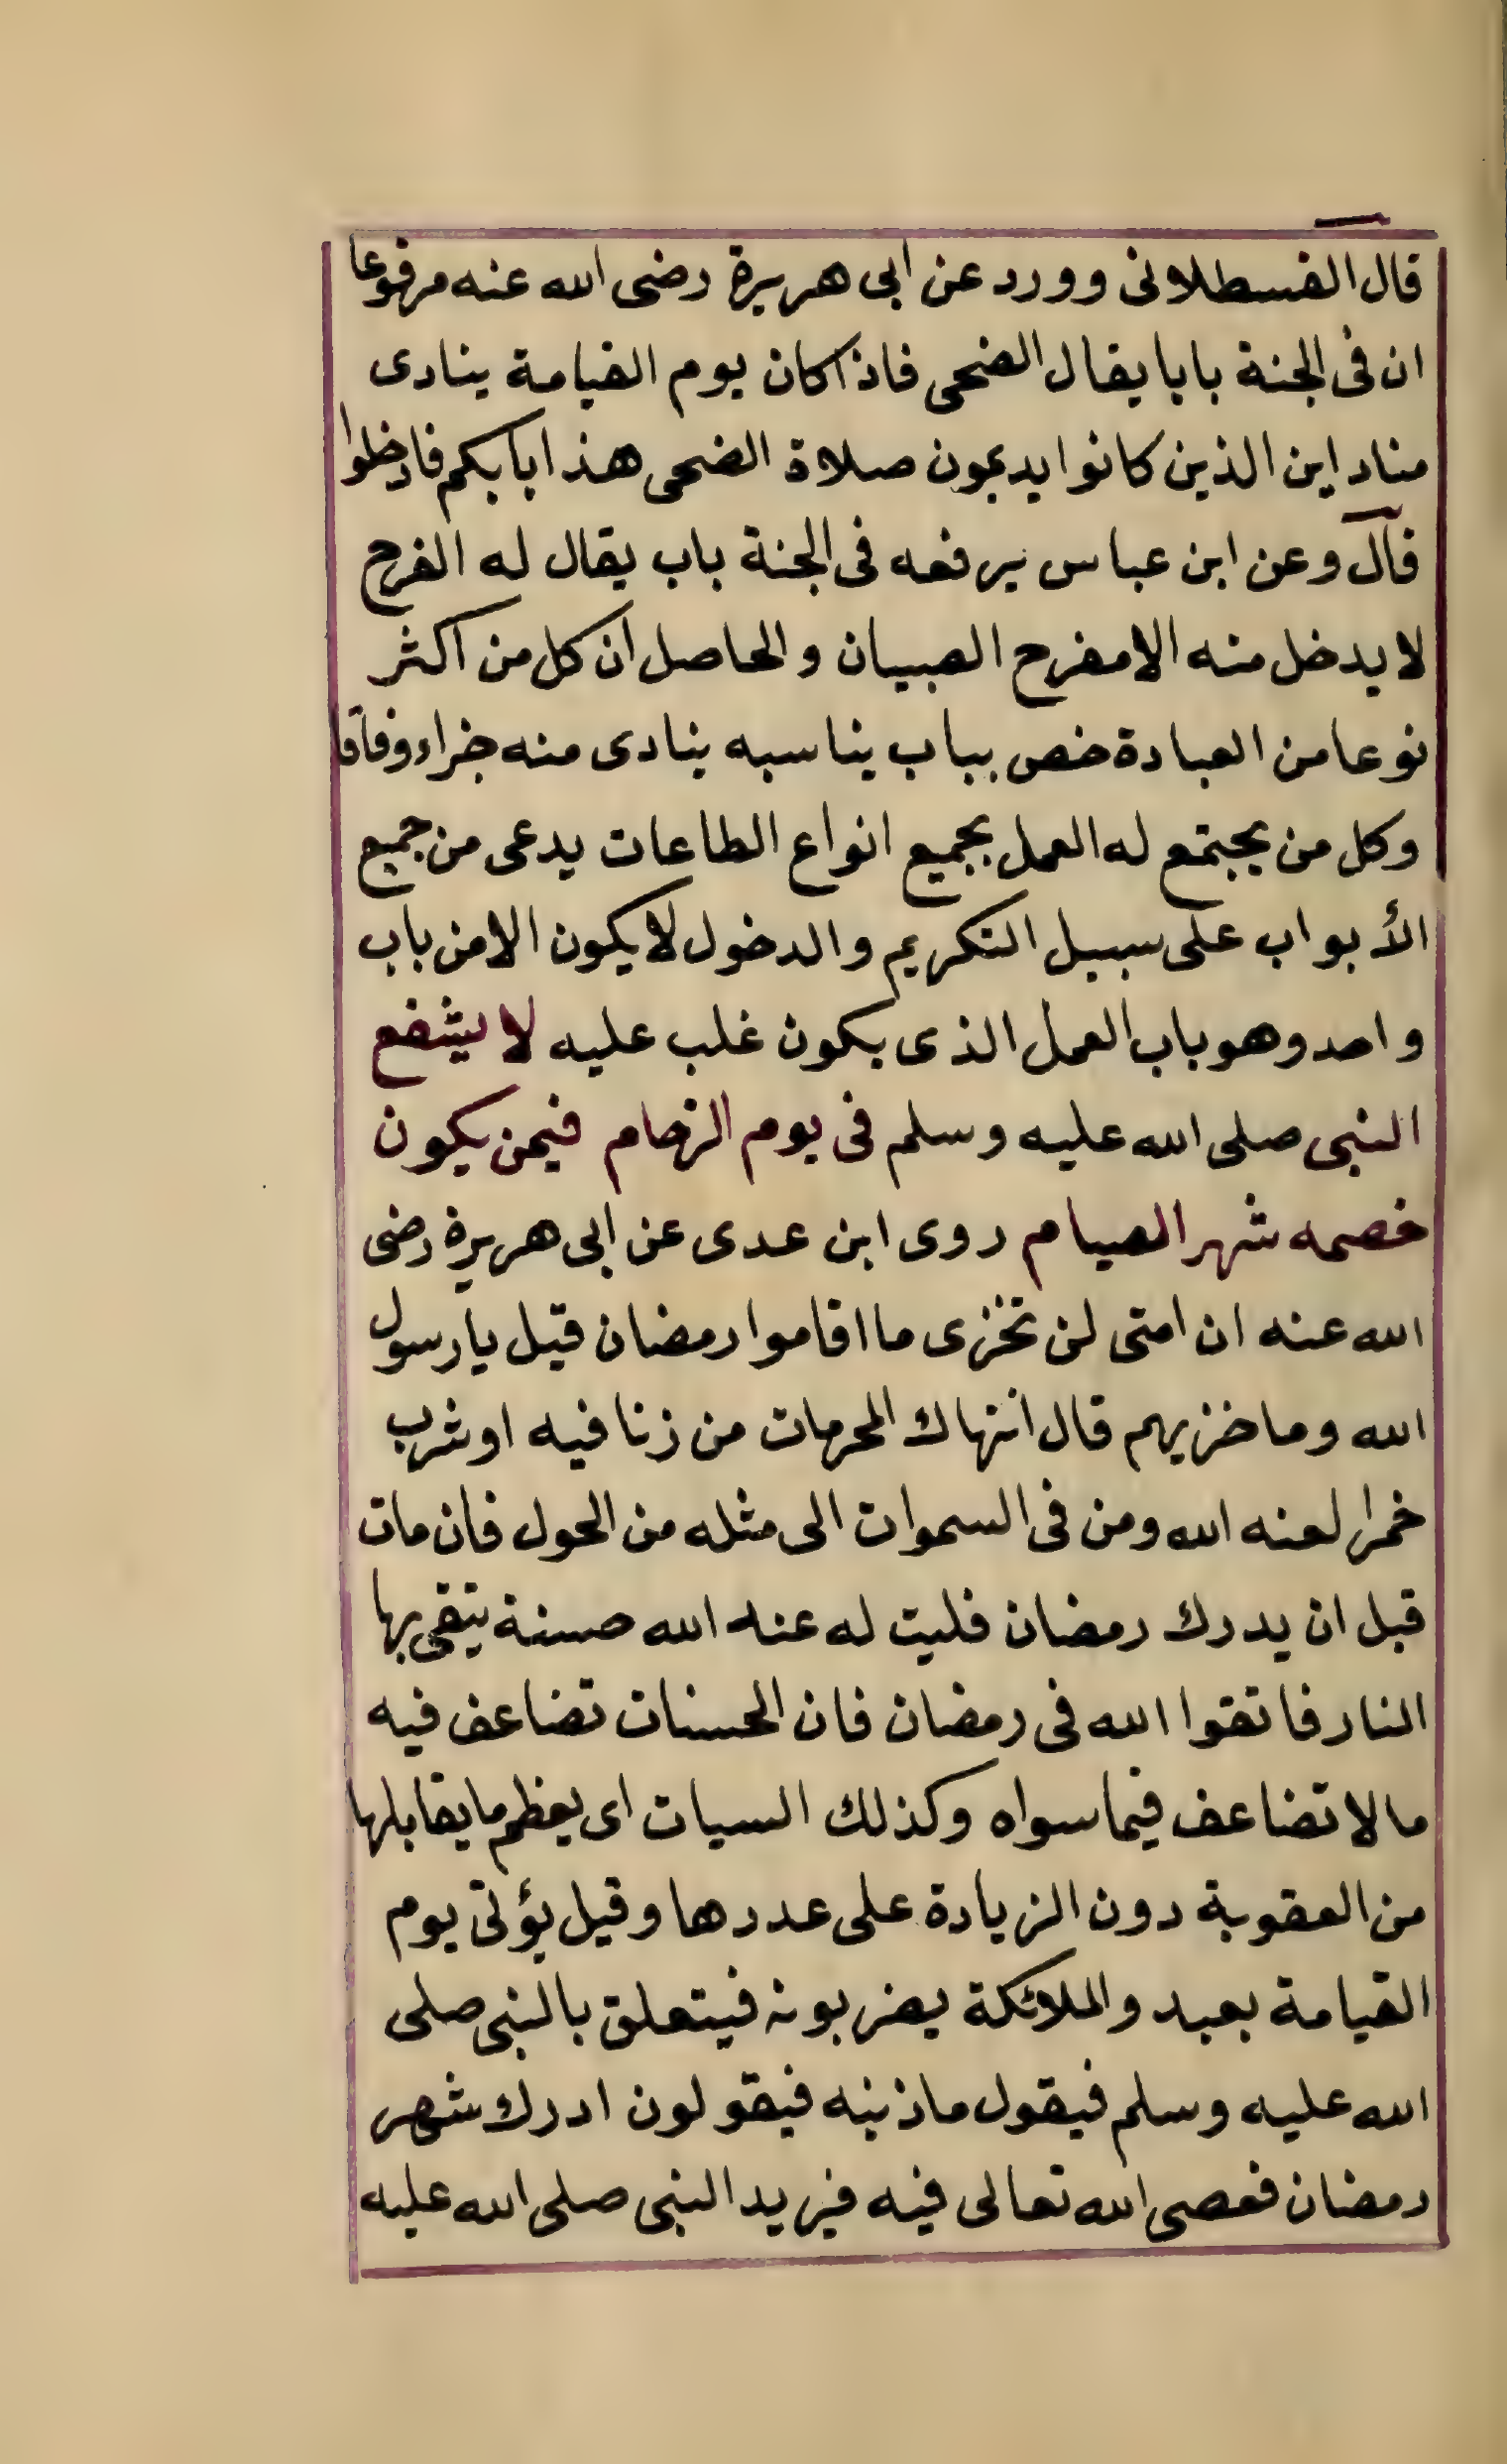 قال القسطلانى وورد عن ابى هريرة رضى الله عنه مرفوعا
ان فى الجنة بابا يقال الضحى فاذا كان يوم القيامة ينادى
مناد اين الذين كانوا يديمون صلاة الضحى هذا بابكم فادخلوا
قال وعن ابن عباس يرفعه فى الجنة باب يقال له الفرح
لا يدخل منه الا مفرح الصبيان والحاصل ان كل من اكثر
نوعا من العبادة خص بباب يناسبه ينادى منه جزاء وفاقا
وكل من يجتمع له العمل بجميع انواع الطاعات يدعى من جميع
الأبواب على سبيل التكريم والدخول لا يكون الا من باب
واحد وهو باب العمل الذى يكون غلب عليه لا يشفع
النبى صلى الله عليه وسلم فى يوم الزحام فيمن يكون
خصمه شهر الصيام روى ابن عدى عن ابى هريرة رضى
الله عنه ان امتى لن تخزى ما اقاموا رمضان قيل يا رسول
الله وما خزيهم قال انتهاك المحرمات من زنا فيه او شرب
خمرا لعنه الله ومن فى السموات الى مثله من الحول فان مات
قبل ان يدرك رمضان فليت له عند الله حسنة يتقى بها
النار فاتقوا الله فى رمضان فان الحسنات تضاعف فيه
ما لا تضاعف فيما سواه وكذلك السيات اى يعظم ما يقابلها
من العقوبة دون الزيادة على عددها وقيل يؤتى يوم
القيامة بعبد والملائكة يضربونه فيتعلق بالنبى صلى
الله عليه وسلم فيقول ما ذنبه فيقولون ادرك شهر
رمضان فعصى الله تعالى فيه فيريد النبى صلى الله عليه